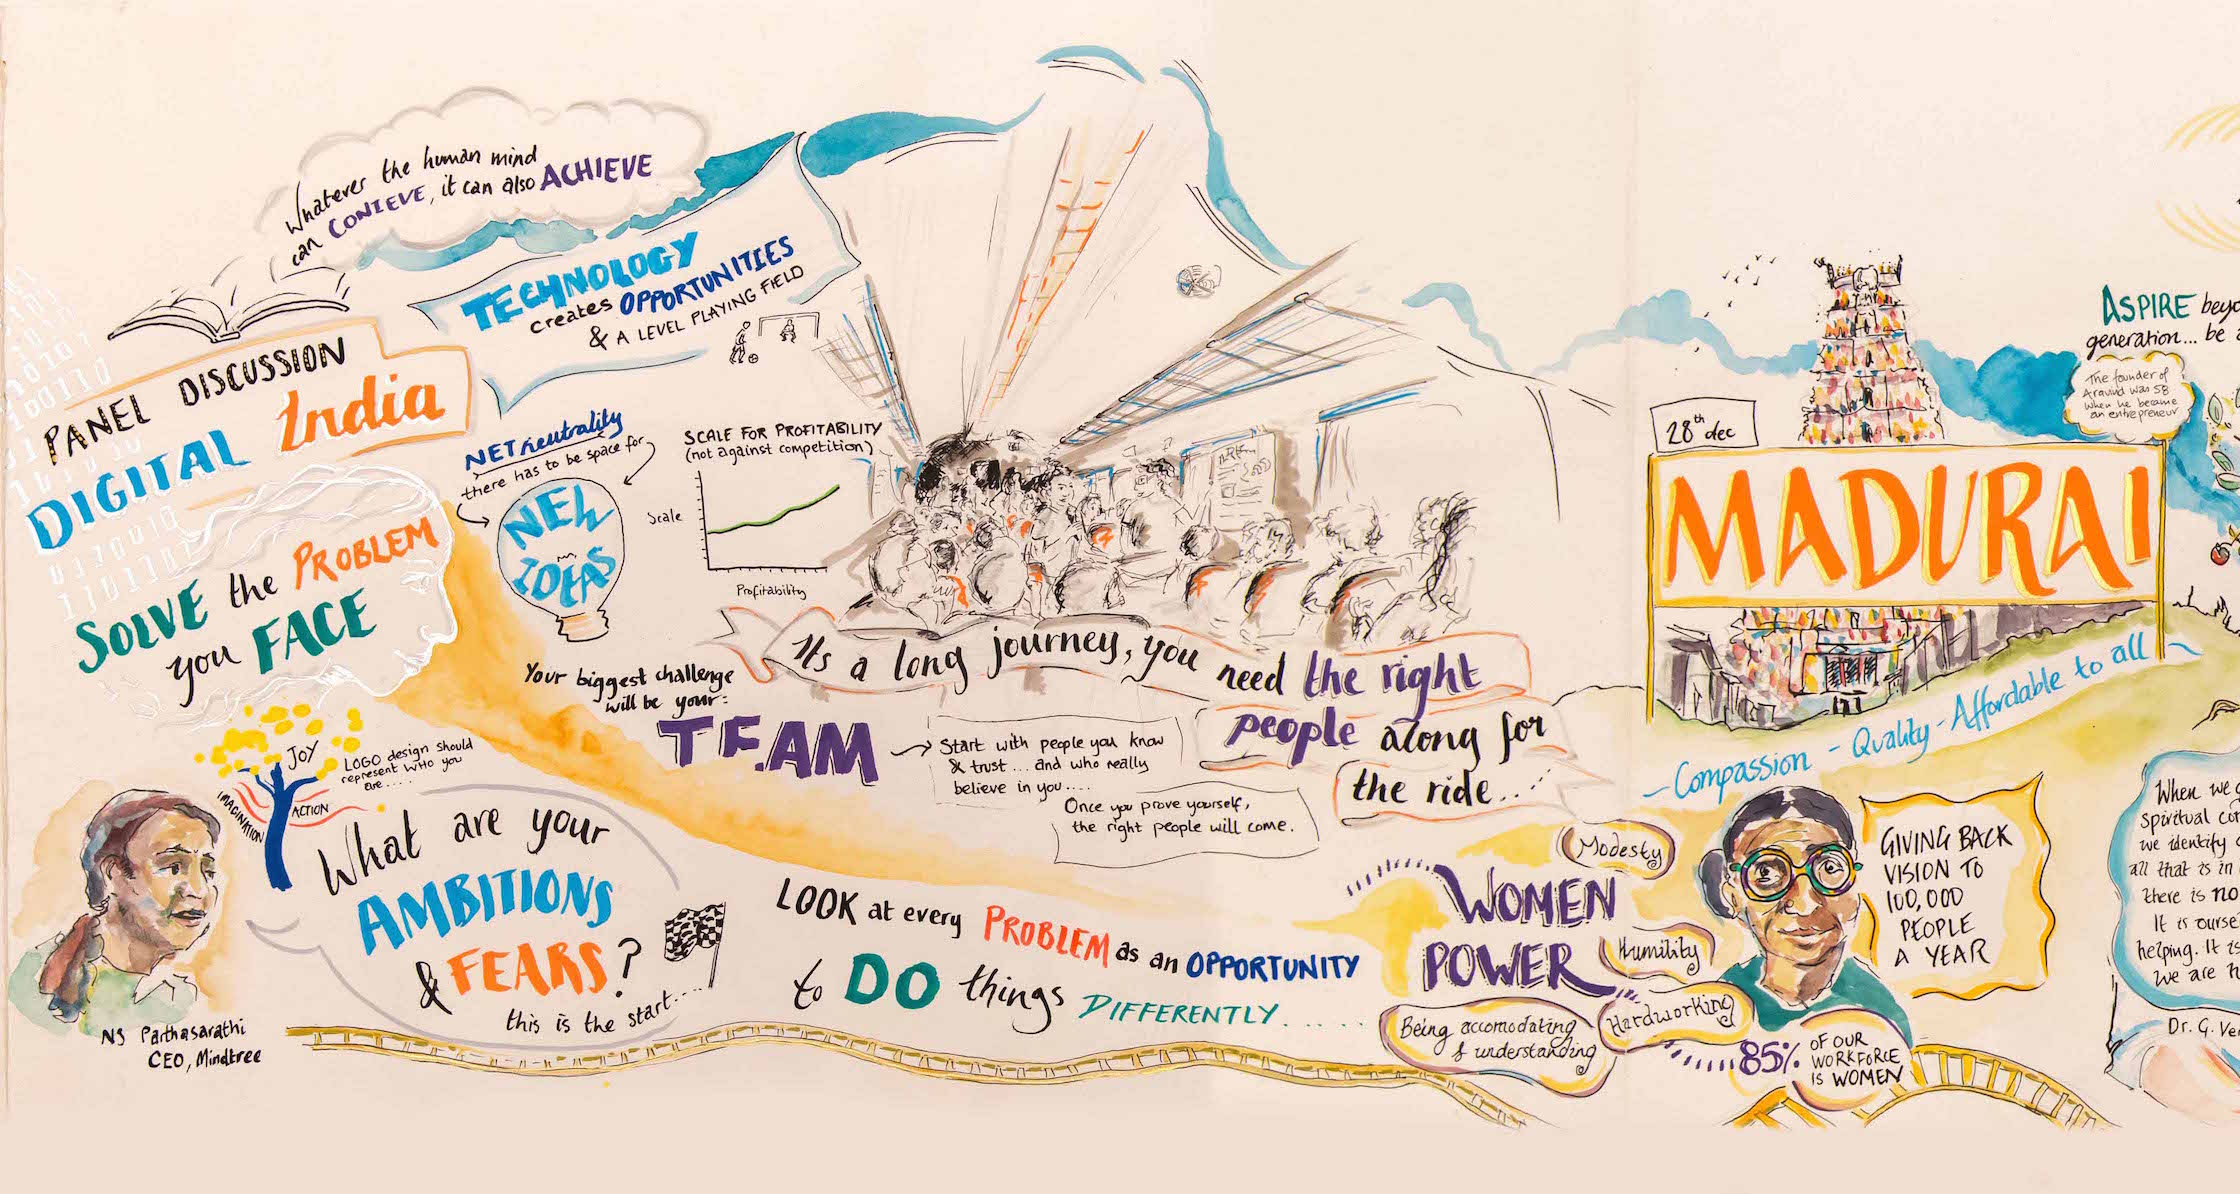 whatever the human mind
can CONIEVE, it can also ACHIEVE
TECHNOLOGY
creates OPPORTUNITIES
& A LEVEL PLAYING FIELD
PANEL DISCUSSION
DIGITAL India
SOLVE the PROBLEM
you FACE
NET neutrality
there has to be space for
NEW
IDEAS
SCALE FOR PROFITABILITY
(not against competition)
Scale
Profitability
Your biggest challenge
will be your:
TEAM
Start with people you know
& trust... and who really
believe in you....
Once you prove yourself,
the right people will come.
Its a long journey, you need the right
people along for
the ride...
JOY
IMAGINATION
ACTION
LOGO design should
represent WHO you
are.....
What are your
AMBITIONS
& FEARS?
this is the start....
NS Parthasarathi
CEO, Mindtree
LOOK at every PROBLEM as an OPPORTUNITY
to DO things DIFFERENTLY.....
WOMEN
POWER
Modesty
Humility
Hardworking
Being accomodating
& understanding
85% OF OUR
WORKFORCE
IS WOMEN
28th dec
MADURAI
- Compassion - Quality - Affordable to all
GIVING BACK
VISION TO
100,000
PEOPLE
A YEAR
ASPIRE
generation... be
The founder of
Aravind was 58
when he became
an entrepreneur
When we
spiritual
we identify
all that is in
there is no
It is
helping. It is
we are
Dr. G.